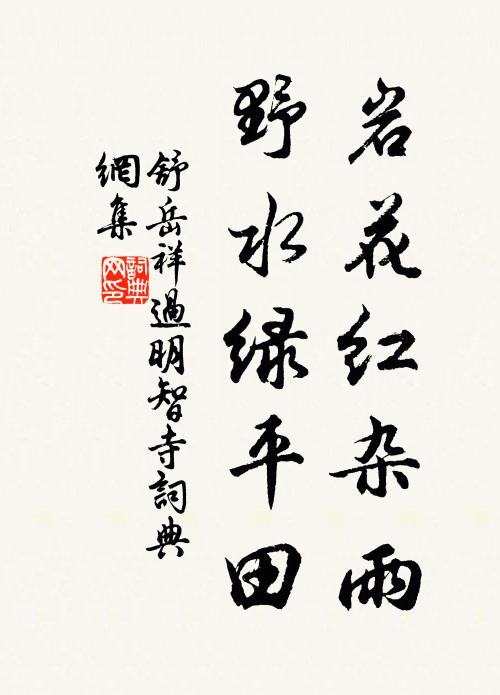 岩花红杂雨
野水绿平田
舒岳祥過明智寺詞典
網集
詞典
网印